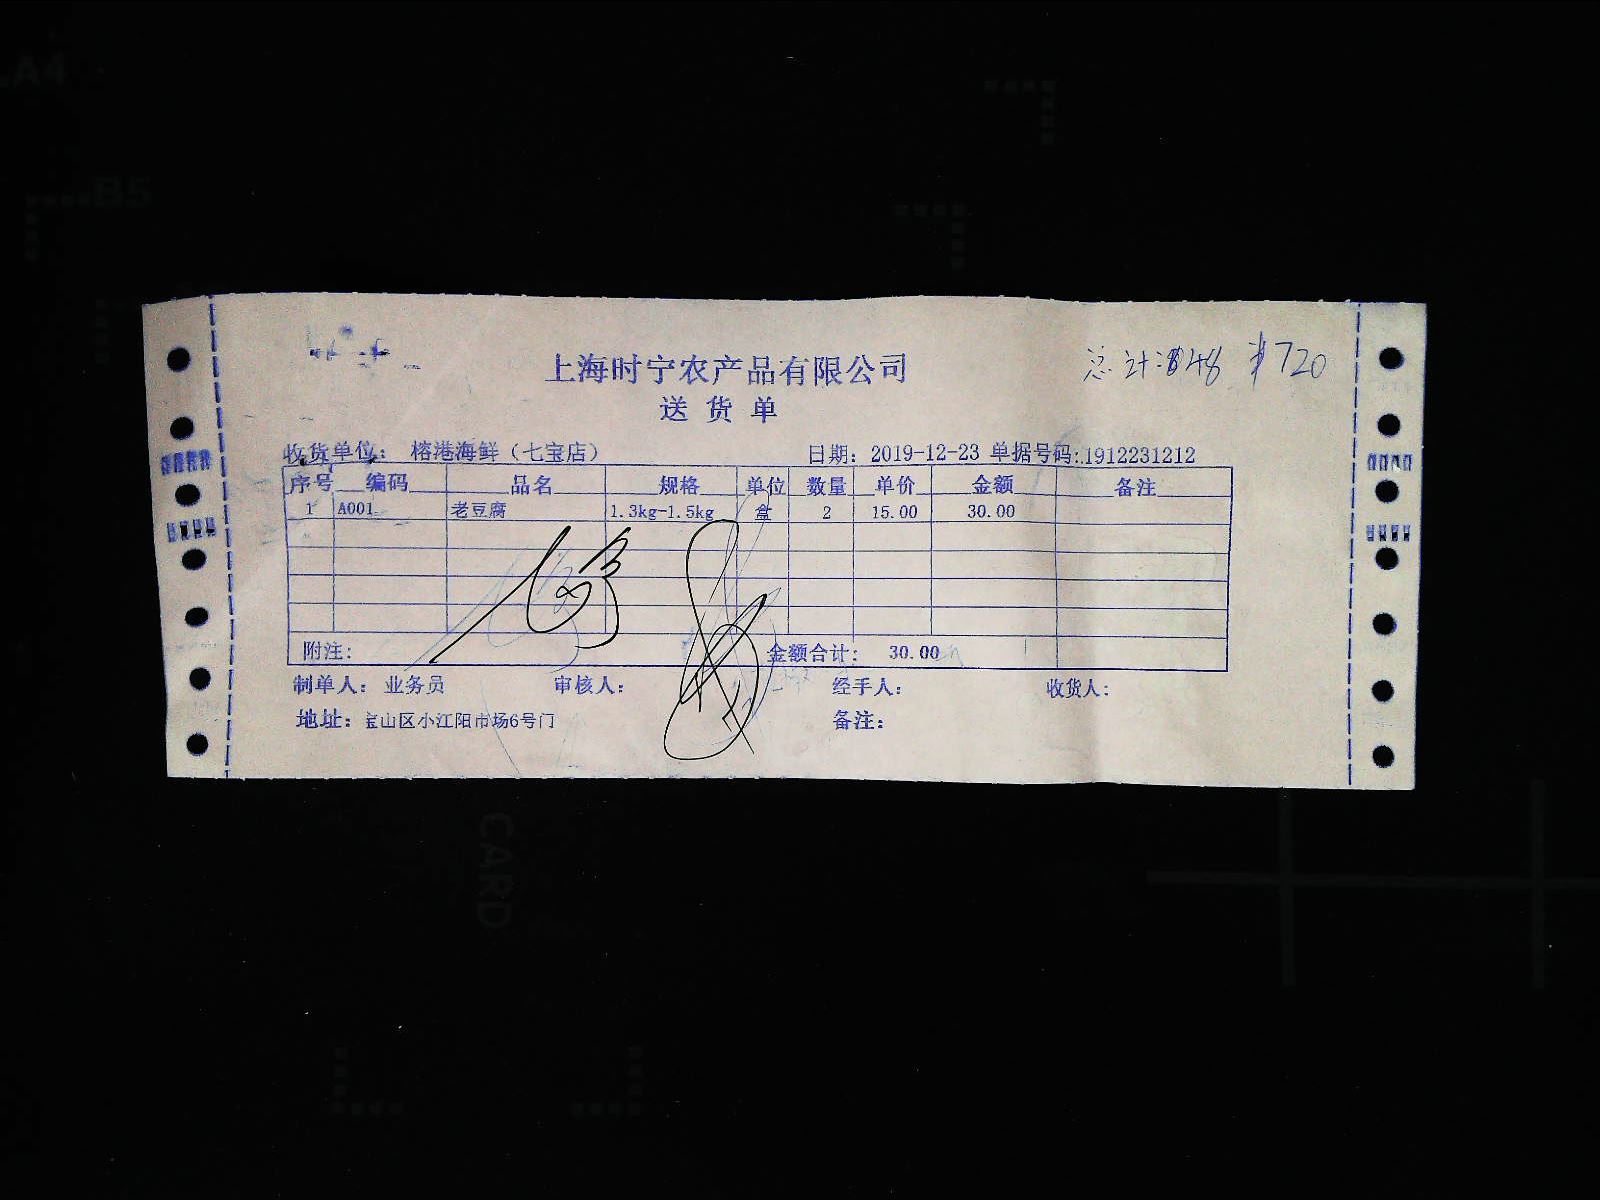 上海时宁农产品有限公司
总计:48 ¥720
送货单
收货单位: 榕港海鲜(七宝店) 日期: 2019-12-23 单据号码:1912231212
序号 编码 品名 规格 单位 数量 单价 金额 备注
1 A001 老豆腐 1.3kg-1.5kg 盒 2 15.00 30.00
附注: 金额合计: 30.00
制单人: 业务员 审核人: 经手人: 收货人:
地址: 宝山区小江阳市场6号门 备注: